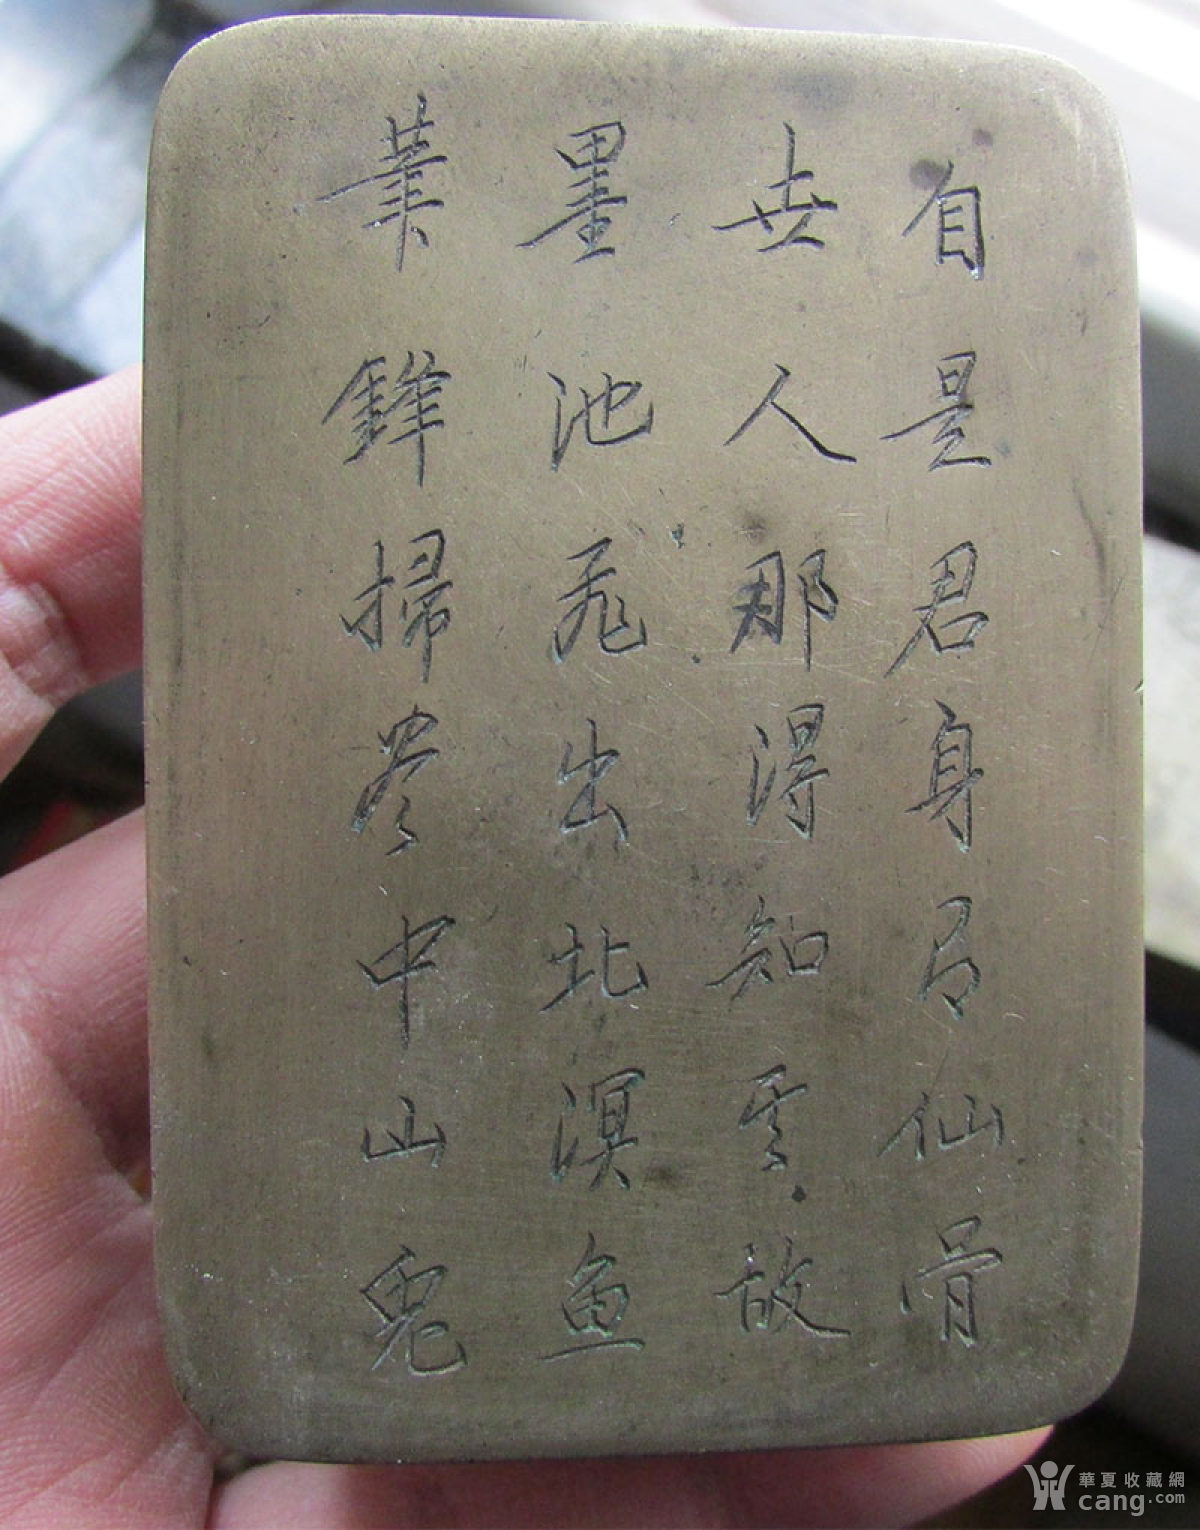 自是君身有仙骨
世人那得知其故
墨池飛出北溟鱼
筆鋒掃尽中山兔
華夏收藏網
cang.com